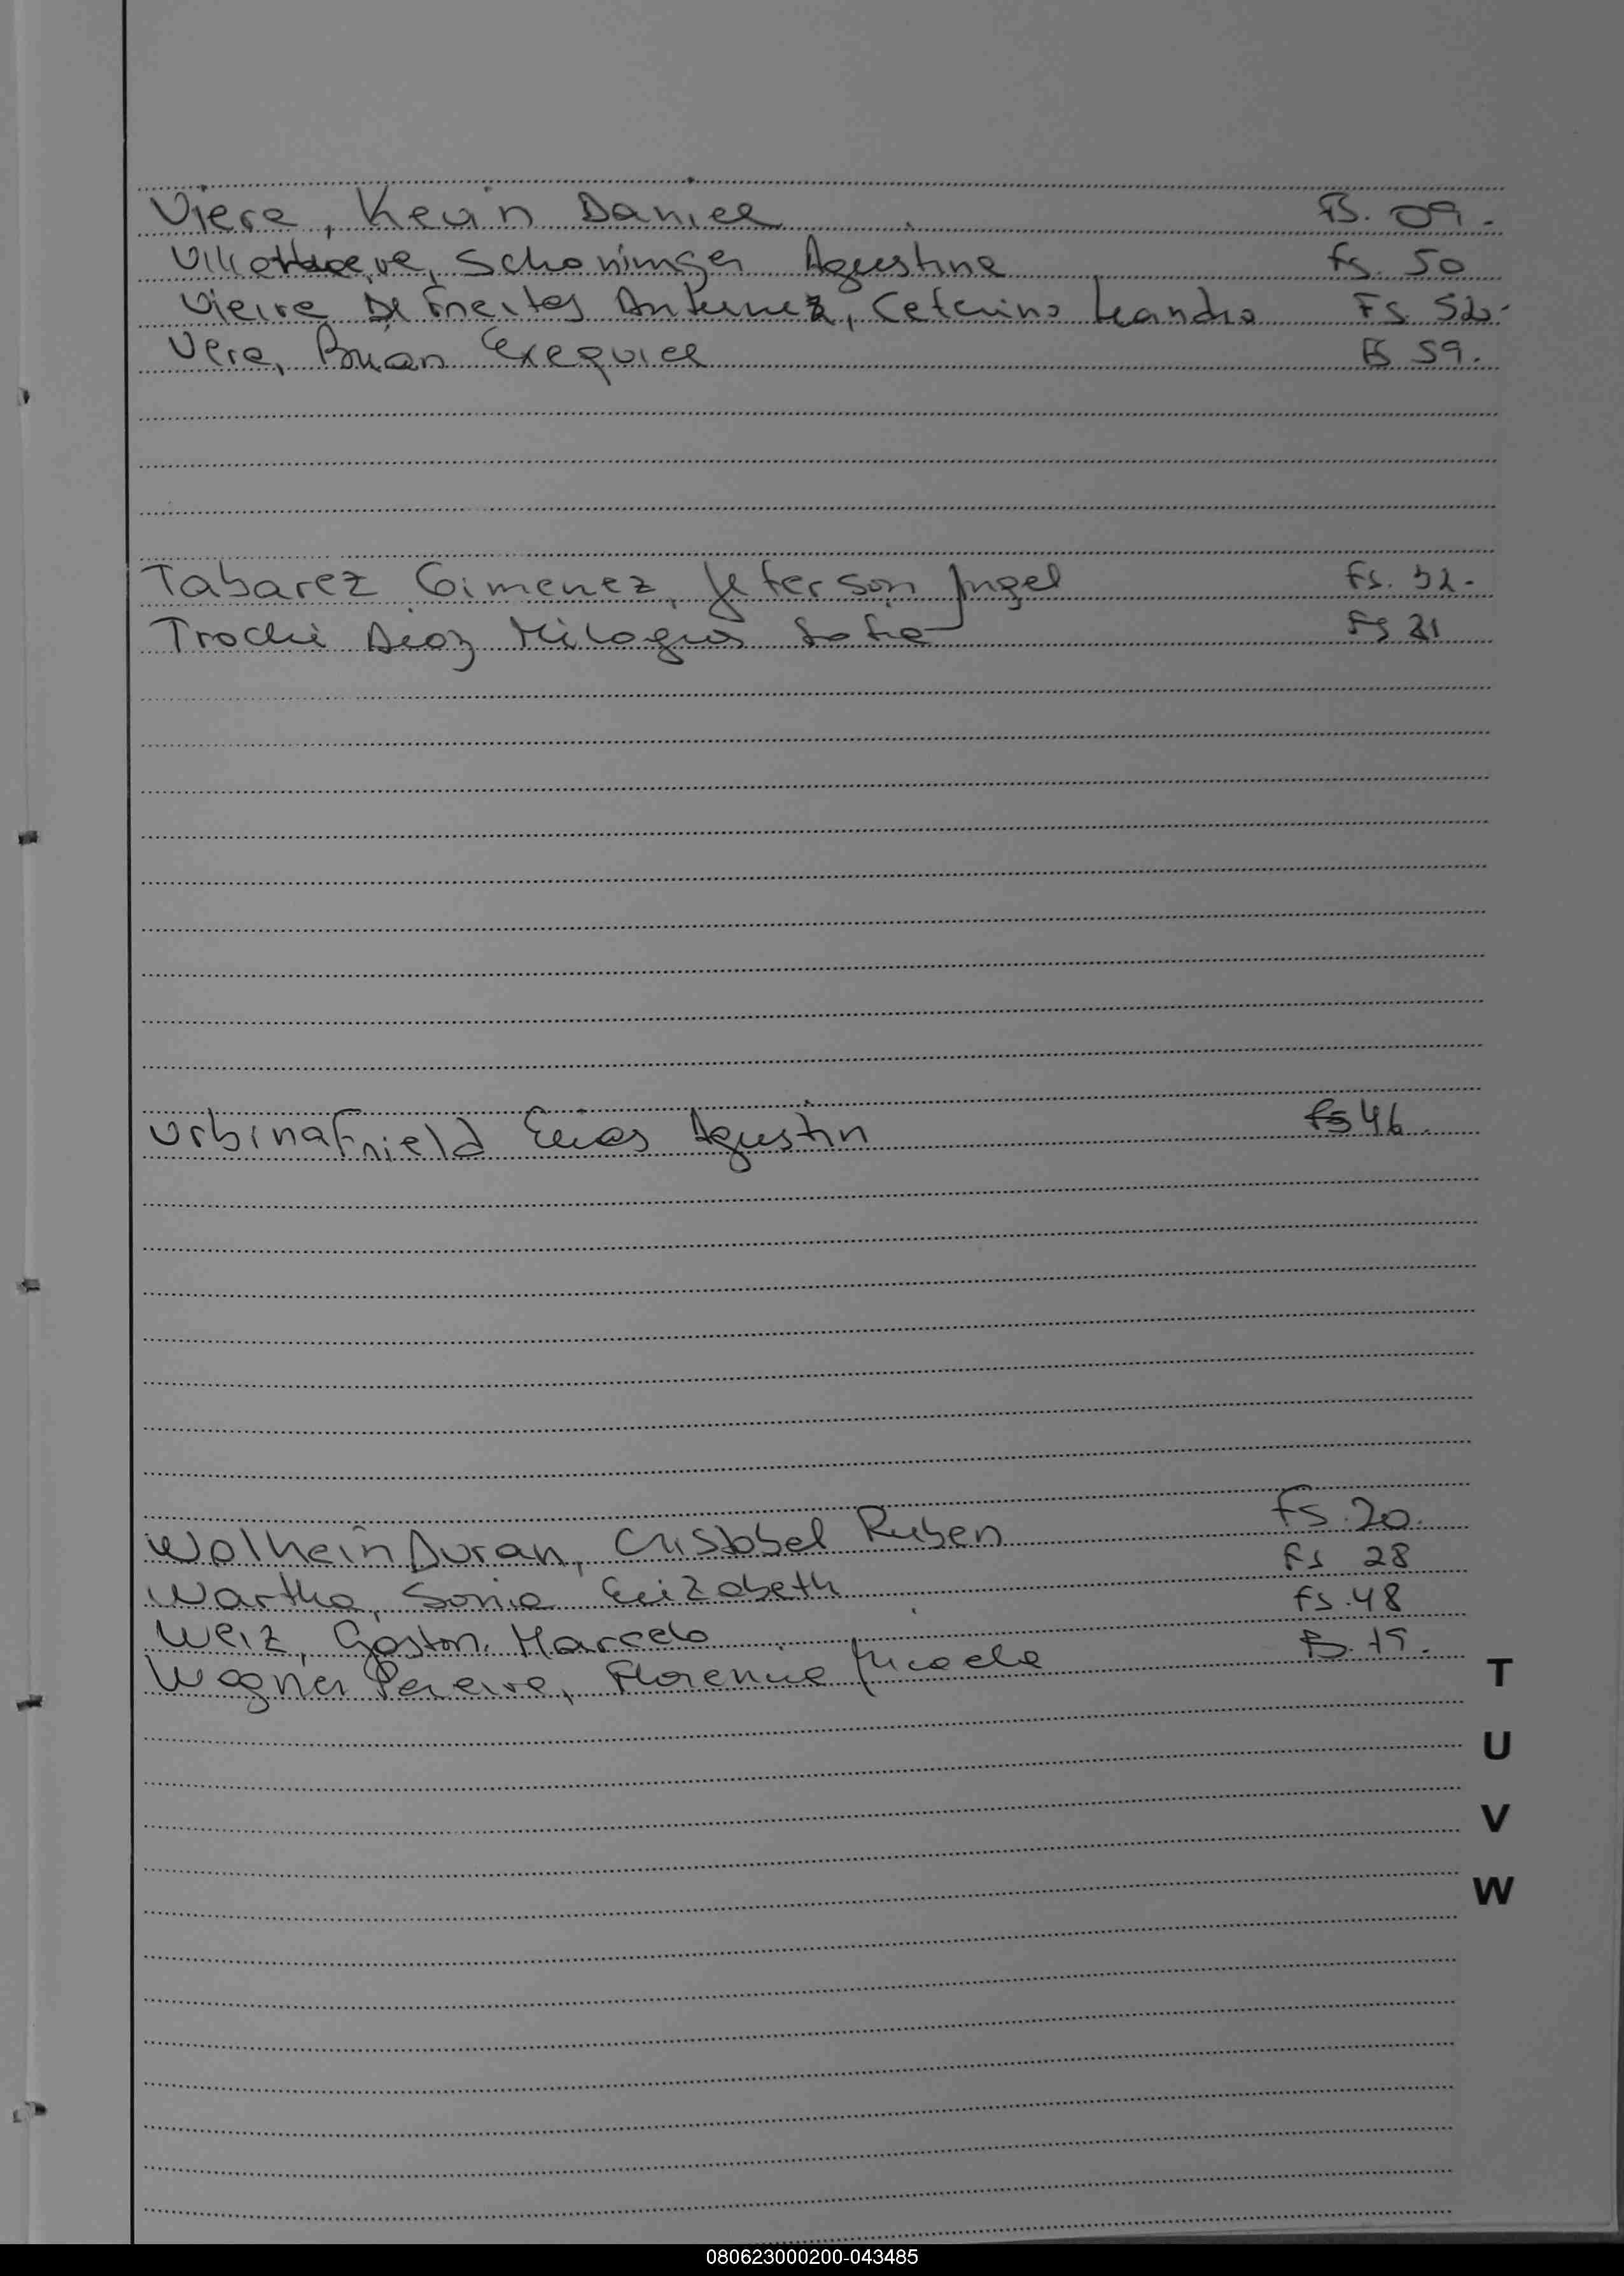 Viera, Kevin Daniel Fs. 09.
Schoninger Agustina Fs. 50
Vieira De Freitas Antunez, Leandro Fs. 52.
Vera, Brian Exequiel Fs 59.
Tabarez Gimenez, Jeferson Angel Fs. 32.
Trochi Diaz Milagros Sofia Fs 21
Urbina Frield Elias Agustin Fs 46.
Wolhein Duran, Cristobal Ruben Fs. 20.
Wartha, Sonia Elizabeth Fs 28
Weiz, Gaston Marcelo Fs. 48
Wagner Pereira, Florencia Micaela Fs. 15.
T
U
V
W
080623000200-043485